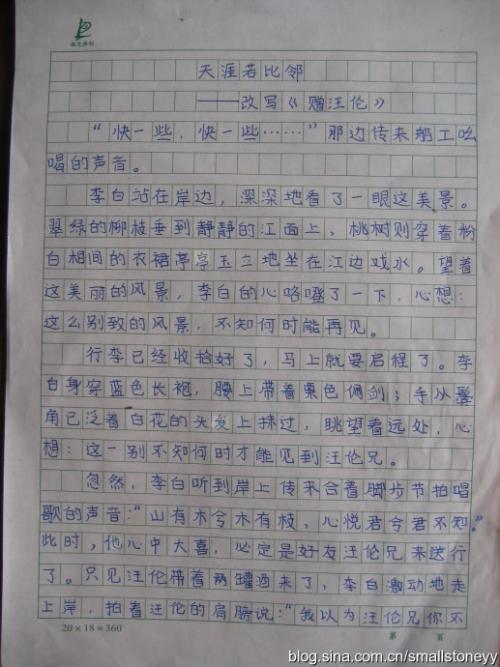 天涯若比邻
——改写《赠汪伦》
“快一些，快一些……”那边传来船工吆
喝的声音。
李白站在岸边，深深地看了一眼这美景。
翠绿的柳枝垂到静静的江面上，桃树则穿着粉
白相间的衣裙亭亭玉立地坐在江边戏水。望着
这美丽的风景，李白的心咯噔了一下，心想：
这么别致的风景，不知何时能再见。
行李已经收拾好了，马上就要启程了。李
白身穿蓝色长袍，腰上带着栗色佩剑；手从鬓
角已泛着白花的头发上抹过，眺望着远处，心
想：这一别不知何时才能见到汪伦兄。
忽然，李白听到岸上传来合着脚步节拍唱
歌的声音：“山有木兮木有枝，心悦君兮君不知。”
此时，他心中大喜，必定是好友汪伦兄来送行
了。只见汪伦带着两罐酒来了，李白激动地走
上岸，拍着汪伦的肩膀说：“我以为汪伦兄你不
20×18=360
第 页
blog.sina.com.cn/smallstoneyy